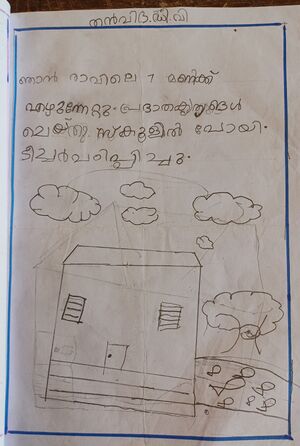 തൻവിദ.കെ.വി
ഞാൻ രാവിലെ 7 മണിക്ക്
എഴുന്നേറ്റു. പ്രഭാതകൃത്യങ്ങൾ
ചെയ്തു. സ്കൂളിൽ പോയി.
ടീച്ചർ പഠിപ്പിച്ചു.